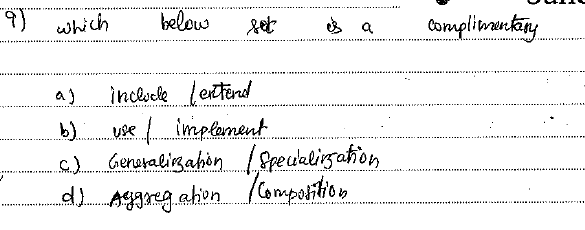 9) which below set is a complimentary
a) include / extend
b) use / implement
c) Generalization / Specialization
d) Aggregation / Composition